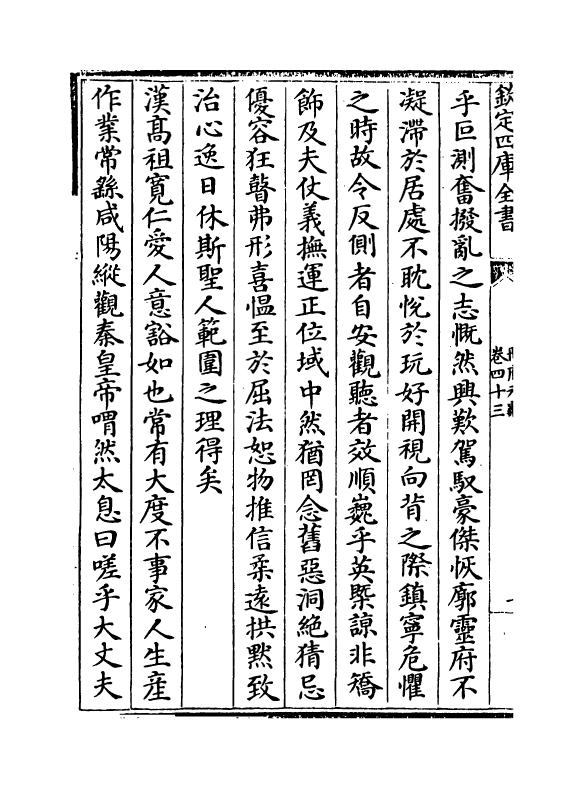 欽定四庫全書
卷四十三
乎叵測奮撥亂之志慨然興歎駕馭豪傑恢廓靈府不
凝滯於居處不耽悅於玩好開視向背之際鎮寧危懼
之時故令反側者自安觀聽者效順巍乎英槩諒非矯
飾及夫仗義撫運正位域中然猶罔念舊惡洞絶猜忌
優容狂瞽弗形喜慍至於屈法恕物推信柔遠拱默致
治心逸日休斯聖人範圍之理得矣
漢髙祖寛仁愛人意豁如也常有大度不事家人生産
作業常繇咸陽縱觀秦皇帝喟然太息曰嗟乎大丈夫